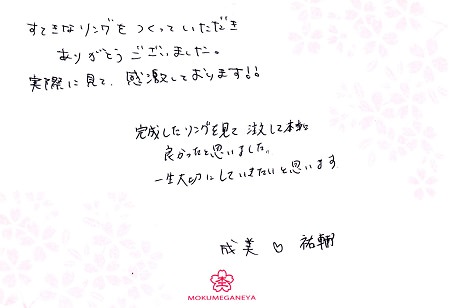 すてきなリングをつくっていただき
ありがとうございました。
実際に見て、感激しております!!
完成したリングを見て 注文して本当に
良かったと思いました。
一生大切にしていきたいと思います
成美 ♡ 祐輔
MOKUMEGANEYA